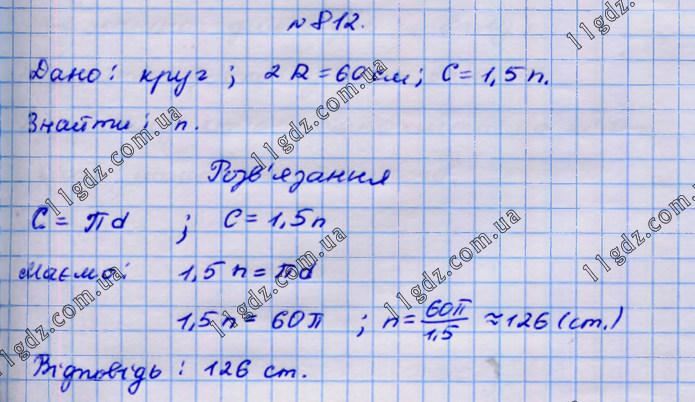 № 812.
Дано: круг; 2R = 60 см; C = 1,5 n.
Знайти: n.
Розв'язання
C = πd ; C = 1,5n
Маємо: 1,5 n = πd
1,5n = 60π ; n = 60π/1,5 ≈ 126 (ст.)
Відповідь: 126 ст.
11gdz.com.ua
11gdz.com.ua
11gdz.com.ua
11gdz.com.ua
11gdz.com.ua
11gdz.com.ua
11gdz.com.ua
11gdz.com.ua